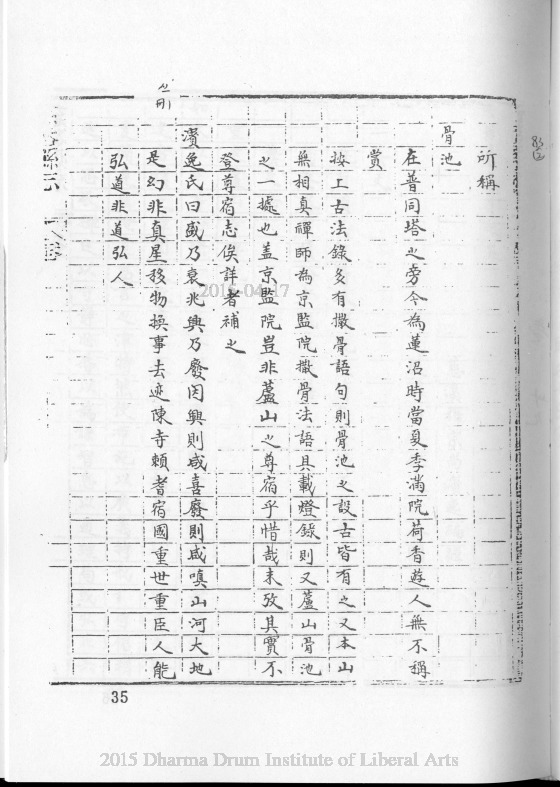 所稱
骨池
在普同塔之旁今為蓮沼時當夏季滿院荷香遊人無不稱
賞
按上古法錄多有撒骨語句則骨池之設古皆有之又本山
無相真禪師為京監院撒骨法語具載燈錄則又蘆山骨池
之一據也蓋京監院豈非蘆山之尊宿乎惜哉未攷其實不
登尊宿志俟詳者補之
濆逸氏曰盛乃衰兆興乃廢因興則咸喜廢則咸嗔山河大地
是幻非真星移物換事去迹陳寺賴耆宿國重世重臣人能
弘道非道弘人
35
2015 Dharma Drum Institute of Liberal Arts